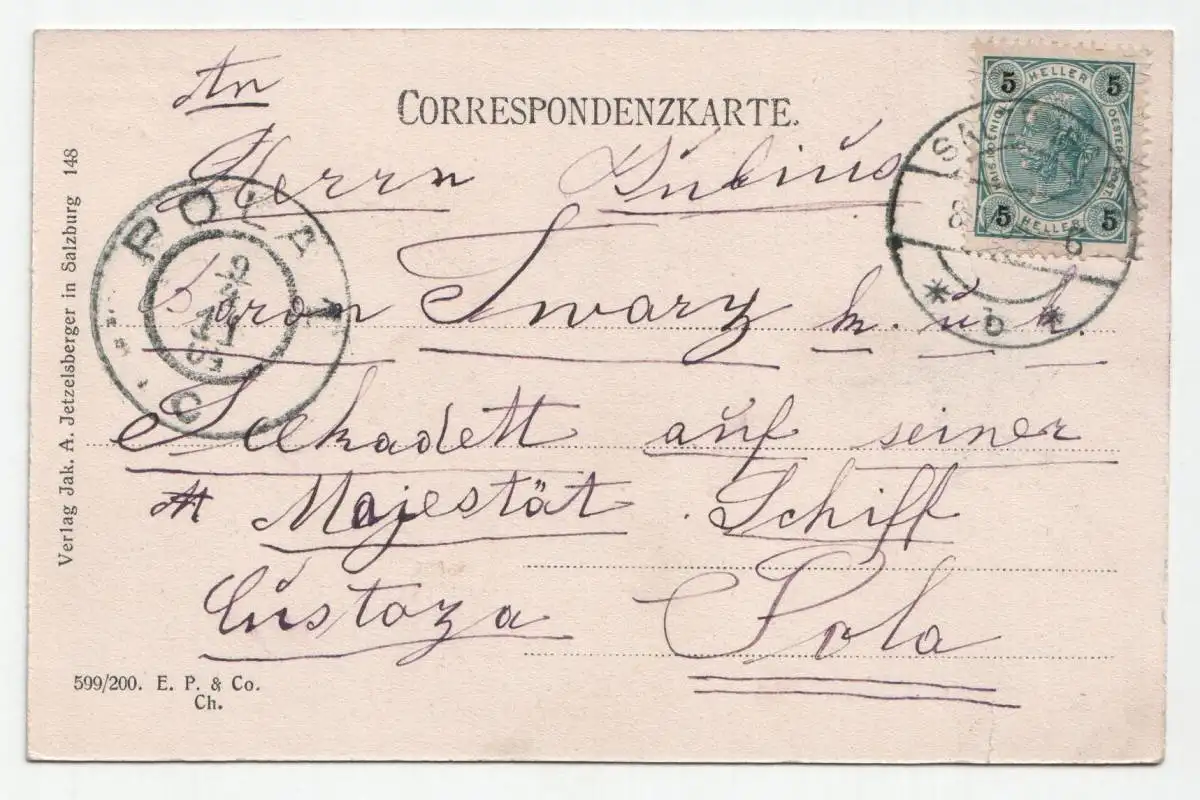 An
CORRESPONDENZKARTE.
Herrn Julius
Baron Swarz k. u. k.
Seekadett auf seiner
Majestät Schiff
Custoza Pola
Verlag Jak. A. Jetzelsberger in Salzburg 148
599/200. E. P. & Co.
Ch.
5 HELLER 5
5 HELLER 5
POLA 1
b